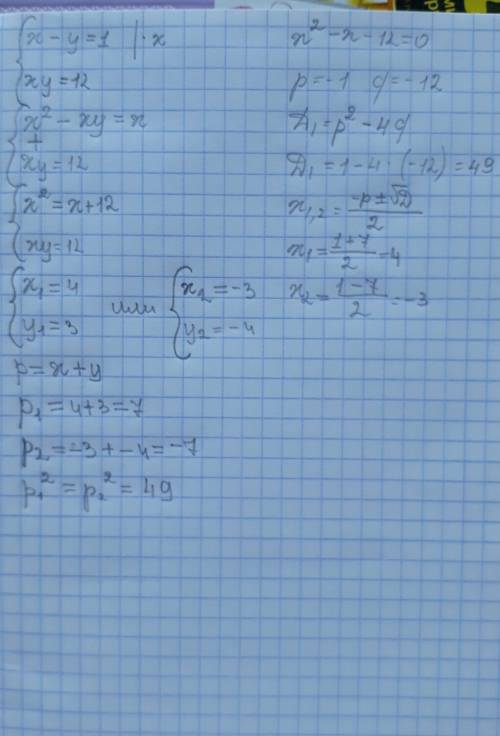 x - y = 1 | · x
xy = 12
x² - xy = x
+
xy = 12
x² = x + 12
xy = 12
x₁ = 4
y₁ = 3
или
x₂ = -3
y₂ = -4
p = x + y
p₁ = 4 + 3 = 7
p₂ = -3 + -4 = -7
p₁² = p₂² = 49
x² - x - 12 = 0
p = -1 q = -12
D₁ = p² - 4q
D₁ = 1 - 4 · (-12) = 49
x₁,₂ = (-p ± √D)/2
x₁ = (1+7)/2 = 4
x₂ = (1-7)/2 = -3